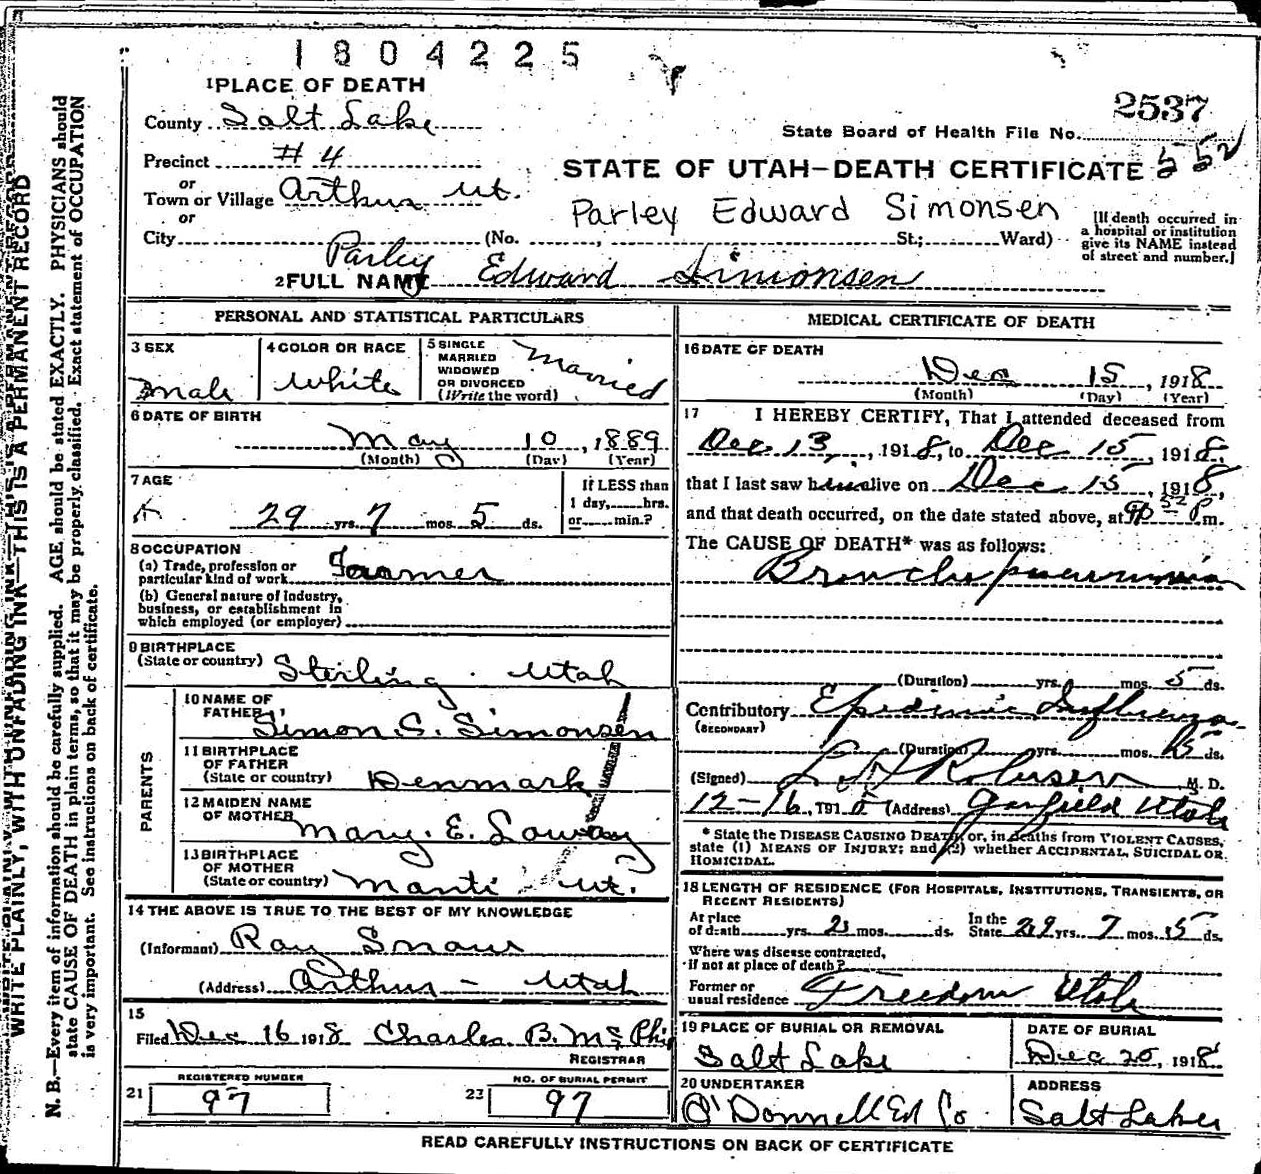 1804225
1 PLACE OF DEATH
2537
County Salt Lake
State Board of Health File No.
Precinct #4
STATE OF UTAH—DEATH CERTIFICATE 552
or
Town or Village Arthur Ut.
or
Parley Edward Simonsen
[If death occurred in a hospital or institution give its NAME instead of street and number.]
City (No. , St.; Ward)
2 FULL NAME Parley Edward Simonsen
PERSONAL AND STATISTICAL PARTICULARS
3 SEX
male
4 COLOR OR RACE
White
5 SINGLE
MARRIED
WIDOWED
OR DIVORCED
(Write the word)
Married
6 DATE OF BIRTH
May 10, 1889
(Month) (Day) (Year)
7 AGE
29 yrs. 7 mos. 5 ds.
If LESS than
1 day, hrs.
or min.?
8 OCCUPATION
(a) Trade, profession or
particular kind of work Farmer
(b) General nature of Industry,
business, or establishment in
which employed (or employer)
9 BIRTHPLACE
(State or country) Sterling Utah
PARENTS
10 NAME OF
FATHER Simon S. Simonsen
11 BIRTHPLACE
OF FATHER
(State or country) Denmark
12 MAIDEN NAME
OF MOTHER Mary. E.
13 BIRTHPLACE
OF MOTHER
(State or country) Manti Ut.
14 THE ABOVE IS TRUE TO THE BEST OF MY KNOWLEDGE
(Informant) Ray
(Address) Arthur - Utah
15
Filed Dec 16 1918 Charles. B.
REGISTRAR
21 REGISTERED NUMBER
97
23 NO. OF BURIAL PERMIT
97
MEDICAL CERTIFICATE OF DEATH
16 DATE OF DEATH
Dec 15, 1918
(Month) (Day) (Year)
17 I HEREBY CERTIFY, That I attended deceased from
Dec 13, 1918, to Dec 15, 1918.
that I last saw him alive on Dec 15, 1918,
and that death occurred, on the date stated above, at P m.
The CAUSE OF DEATH* was as follows:
Broncho pneumonia
(Duration) yrs. mos. 5 ds.
Contributory Epidemic Influenza
(SECONDARY)
(Duration) yrs. mos. ds.
(Signed) M. D.
12-16, 191 (Address) Garfield Utah
* State the DISEASE CAUSING DEATH, or, in deaths from VIOLENT CAUSES,
state (1) MEANS OF INJURY; and (2) whether ACCIDENTAL, SUICIDAL OR
HOMICIDAL.
18 LENGTH OF RESIDENCE (FOR HOSPITALS, INSTITUTIONS, TRANSIENTS, OR
RECENT RESIDENTS)
At place
of death yrs. 2 mos. ds.
In the
State 29 yrs. 7 mos. 5 ds.
Where was disease contracted,
if not at place of death?
Former or
usual residence Freedom Utah
19 PLACE OF BURIAL OR REMOVAL
Salt Lake
DATE OF BURIAL
Dec 20, 1918
20 UNDERTAKER
O'Donnell Co
ADDRESS
Salt Lake
READ CAREFULLY INSTRUCTIONS ON BACK OF CERTIFICATE
WRITE PLAINLY, WITH UNFADING INK—THIS IS A PERMANENT RECORD
N. B.—Every item of information should be carefully supplied. AGE should be stated EXACTLY. PHYSICIANS should
state CAUSE OF DEATH in plain terms, so that it may be properly classified. Exact statement of OCCUPATION
is very important. See instructions on back of certificate.